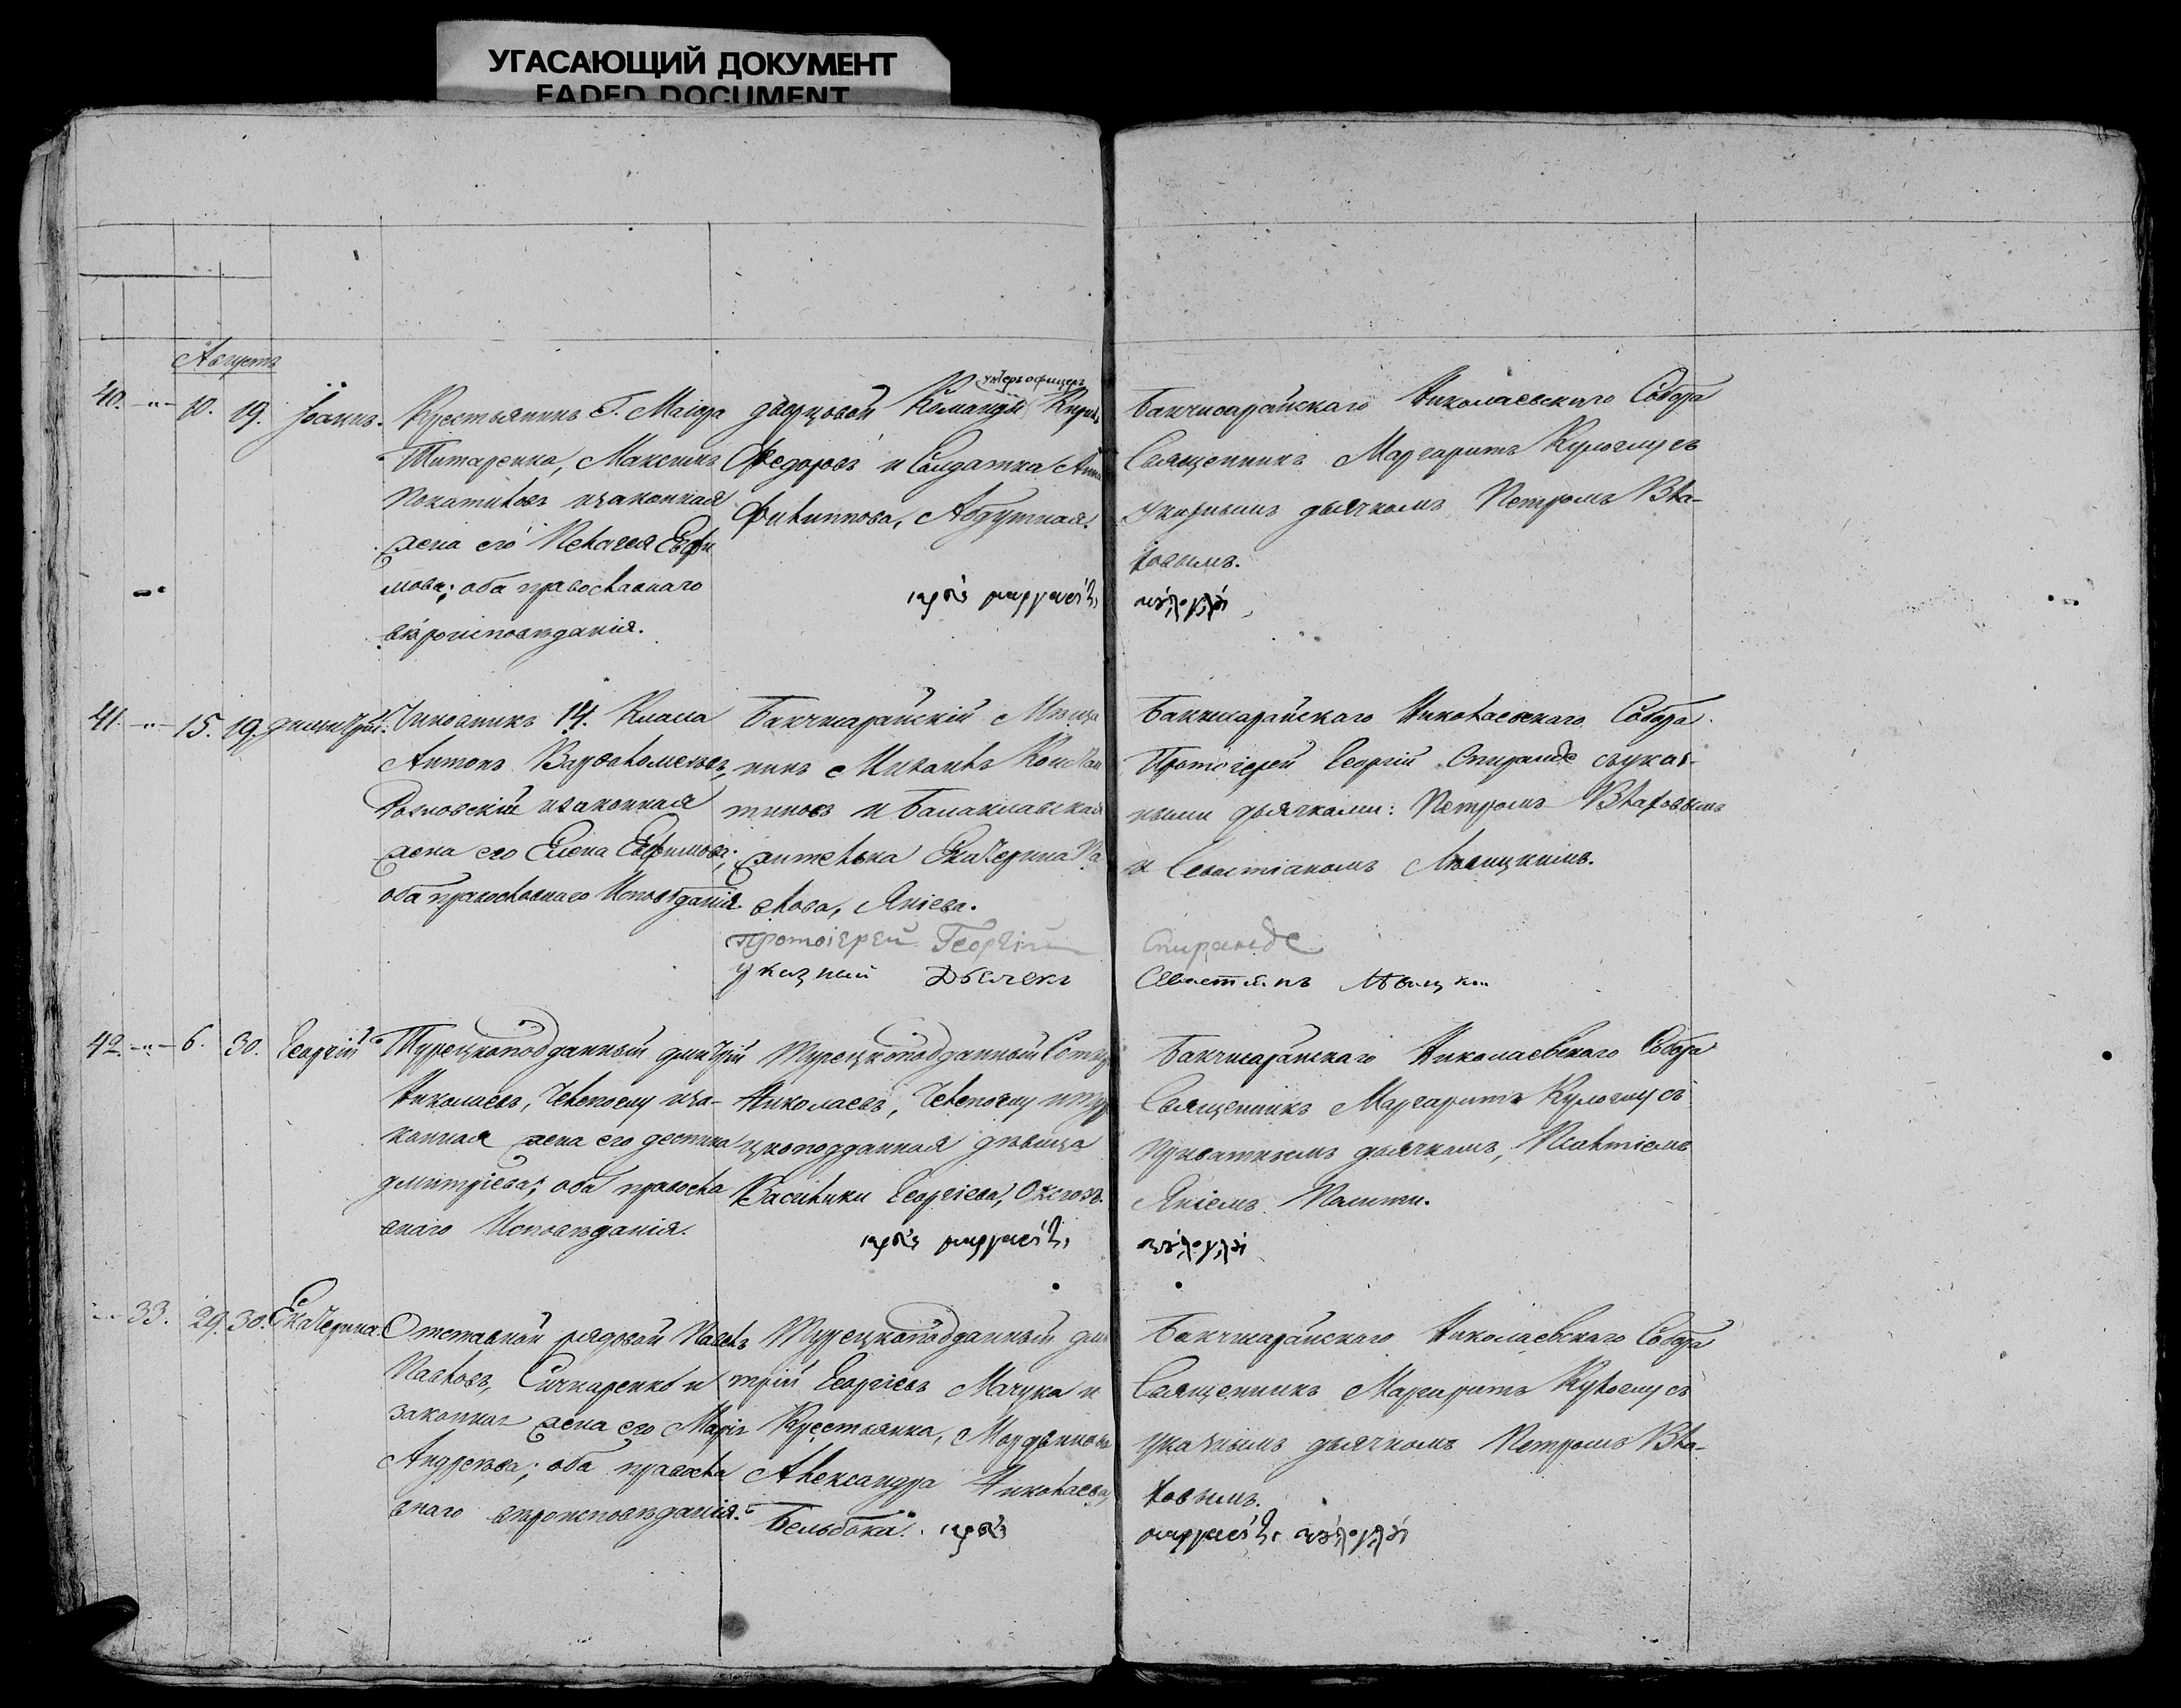 УГАСАЮЩИЙ ДОКУМЕНТ
FADED DOCUMENT
Августъ
40. -"- 10. 19. Іоаннъ.
Крестьянинъ Г. Маіора
Титаренка, Максимъ
законная
жена его Пелагея Ефи
мова; оба православнаго
вѣроисповѣданія.
унтеръ офицеръ
дворцовой Команды
Федоровъ и Солдатка Анна
Филиппова,
Бахчисарайскаго Николаевскаго Собора
Священникъ Маргаритъ Кулоглу съ
указнымъ дьячкомъ Петромъ Вла-
ховымъ.
41. -"- 15. 19. Димитрій.
Чиновникъ 14. Класа
Антонъ Варфоломеевъ,
изаконная
жена его Елена Евфимова;
оба православнаго Исповѣданія.
Бакчисарайскій Мѣща
нинъ Михаилъ Констан
тиновъ и Балаклавская
жителька Екатерина Па
влова, Яніева.
Протоіерей Георгій
указный Дьячекъ
Бакчисарайскаго Николаевскаго Собора
Протоіерей Георгій Спиранде съуказ-
ными дьячками: Петромъ Влаховымъ
и Севастіаномъ Лѣвицкимъ.
Спиранде
Севастіянъ Лѣвицки
42. -"- 6. 30. Георгій
Турецкоподданный Димитрій
Николаевъ, Челепоглу иза-
конная жена его Деспина
Дмитріева; оба правосла
внаго Исповѣданія.
Турецкоподданный
Николаевъ, Челепоглу итуре
цкоподданная дѣвица
Василики Георгіева,
Бакчисарайскаго Николаевскаго Собора
Священникъ Маргаритъ Кулоглу съ
приватнымъ дьячкомъ,
Яніемъ Полити.
-"- 33. 29. 30. Екатерина.
Отставной рядовой Павелъ
Павловъ, Сичкаренко и
законная жена его Марія
Андреева; оба правосла
внаго вѣроисповѣданія.
Турецкоподданный Дим
трій Георгіевъ Мачука и
Крестьянка, Мордвинова
Александра Николаева,
Бельбока.
Бакчисарайскаго Николаевскаго Собора
Священникъ Маргаритъ Кулоглу съ
указнымъ дьячкомъ Петромъ Вла-
ховымъ.